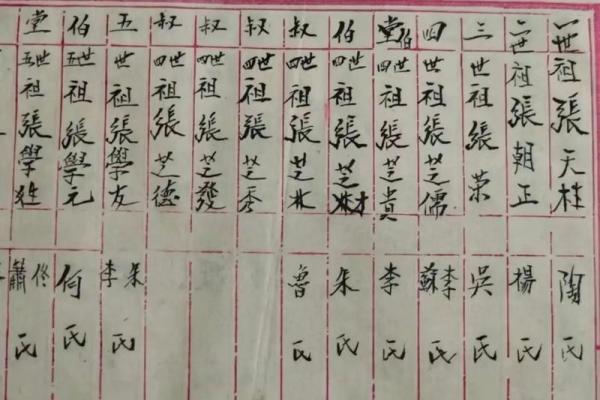 一世祖張天柱 陶氏
二世祖張朝正 楊氏
三世祖張荣 吳氏
四世祖張芝儒 李蘇氏
堂伯四世祖張芝貴 李氏
伯四世祖張芝林 朱氏
叔四世祖張芝 魯氏
叔四世祖張芝秀
叔四世祖張芝發
叔四世祖張芝德
五世祖張學友 朱李氏
伯五世祖張學元 何氏
堂五世祖張學 佟蕭氏